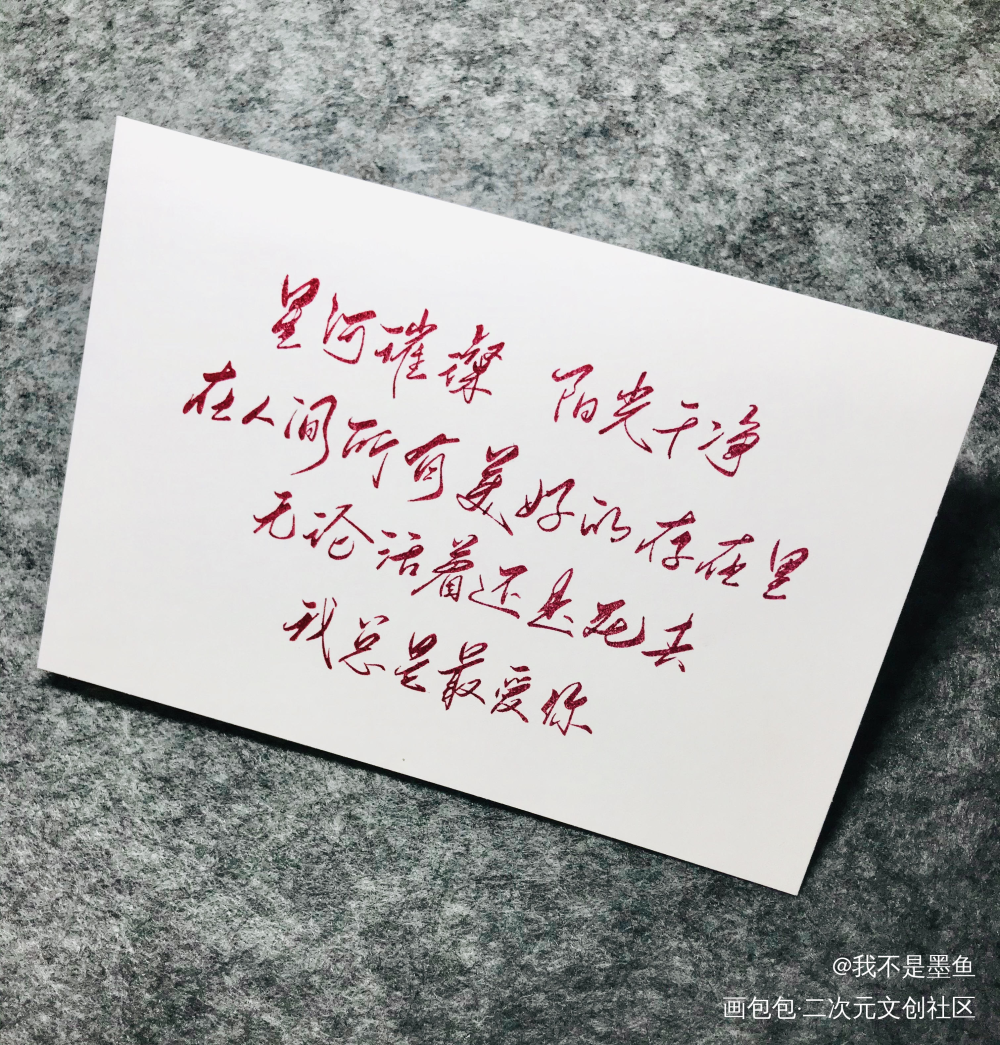 星河璀璨 阳光干净
在人间所有美好的存在里
无论活着还是死去
我总是最爱你
@我不是墨鱼
画包包·二次元文创社区